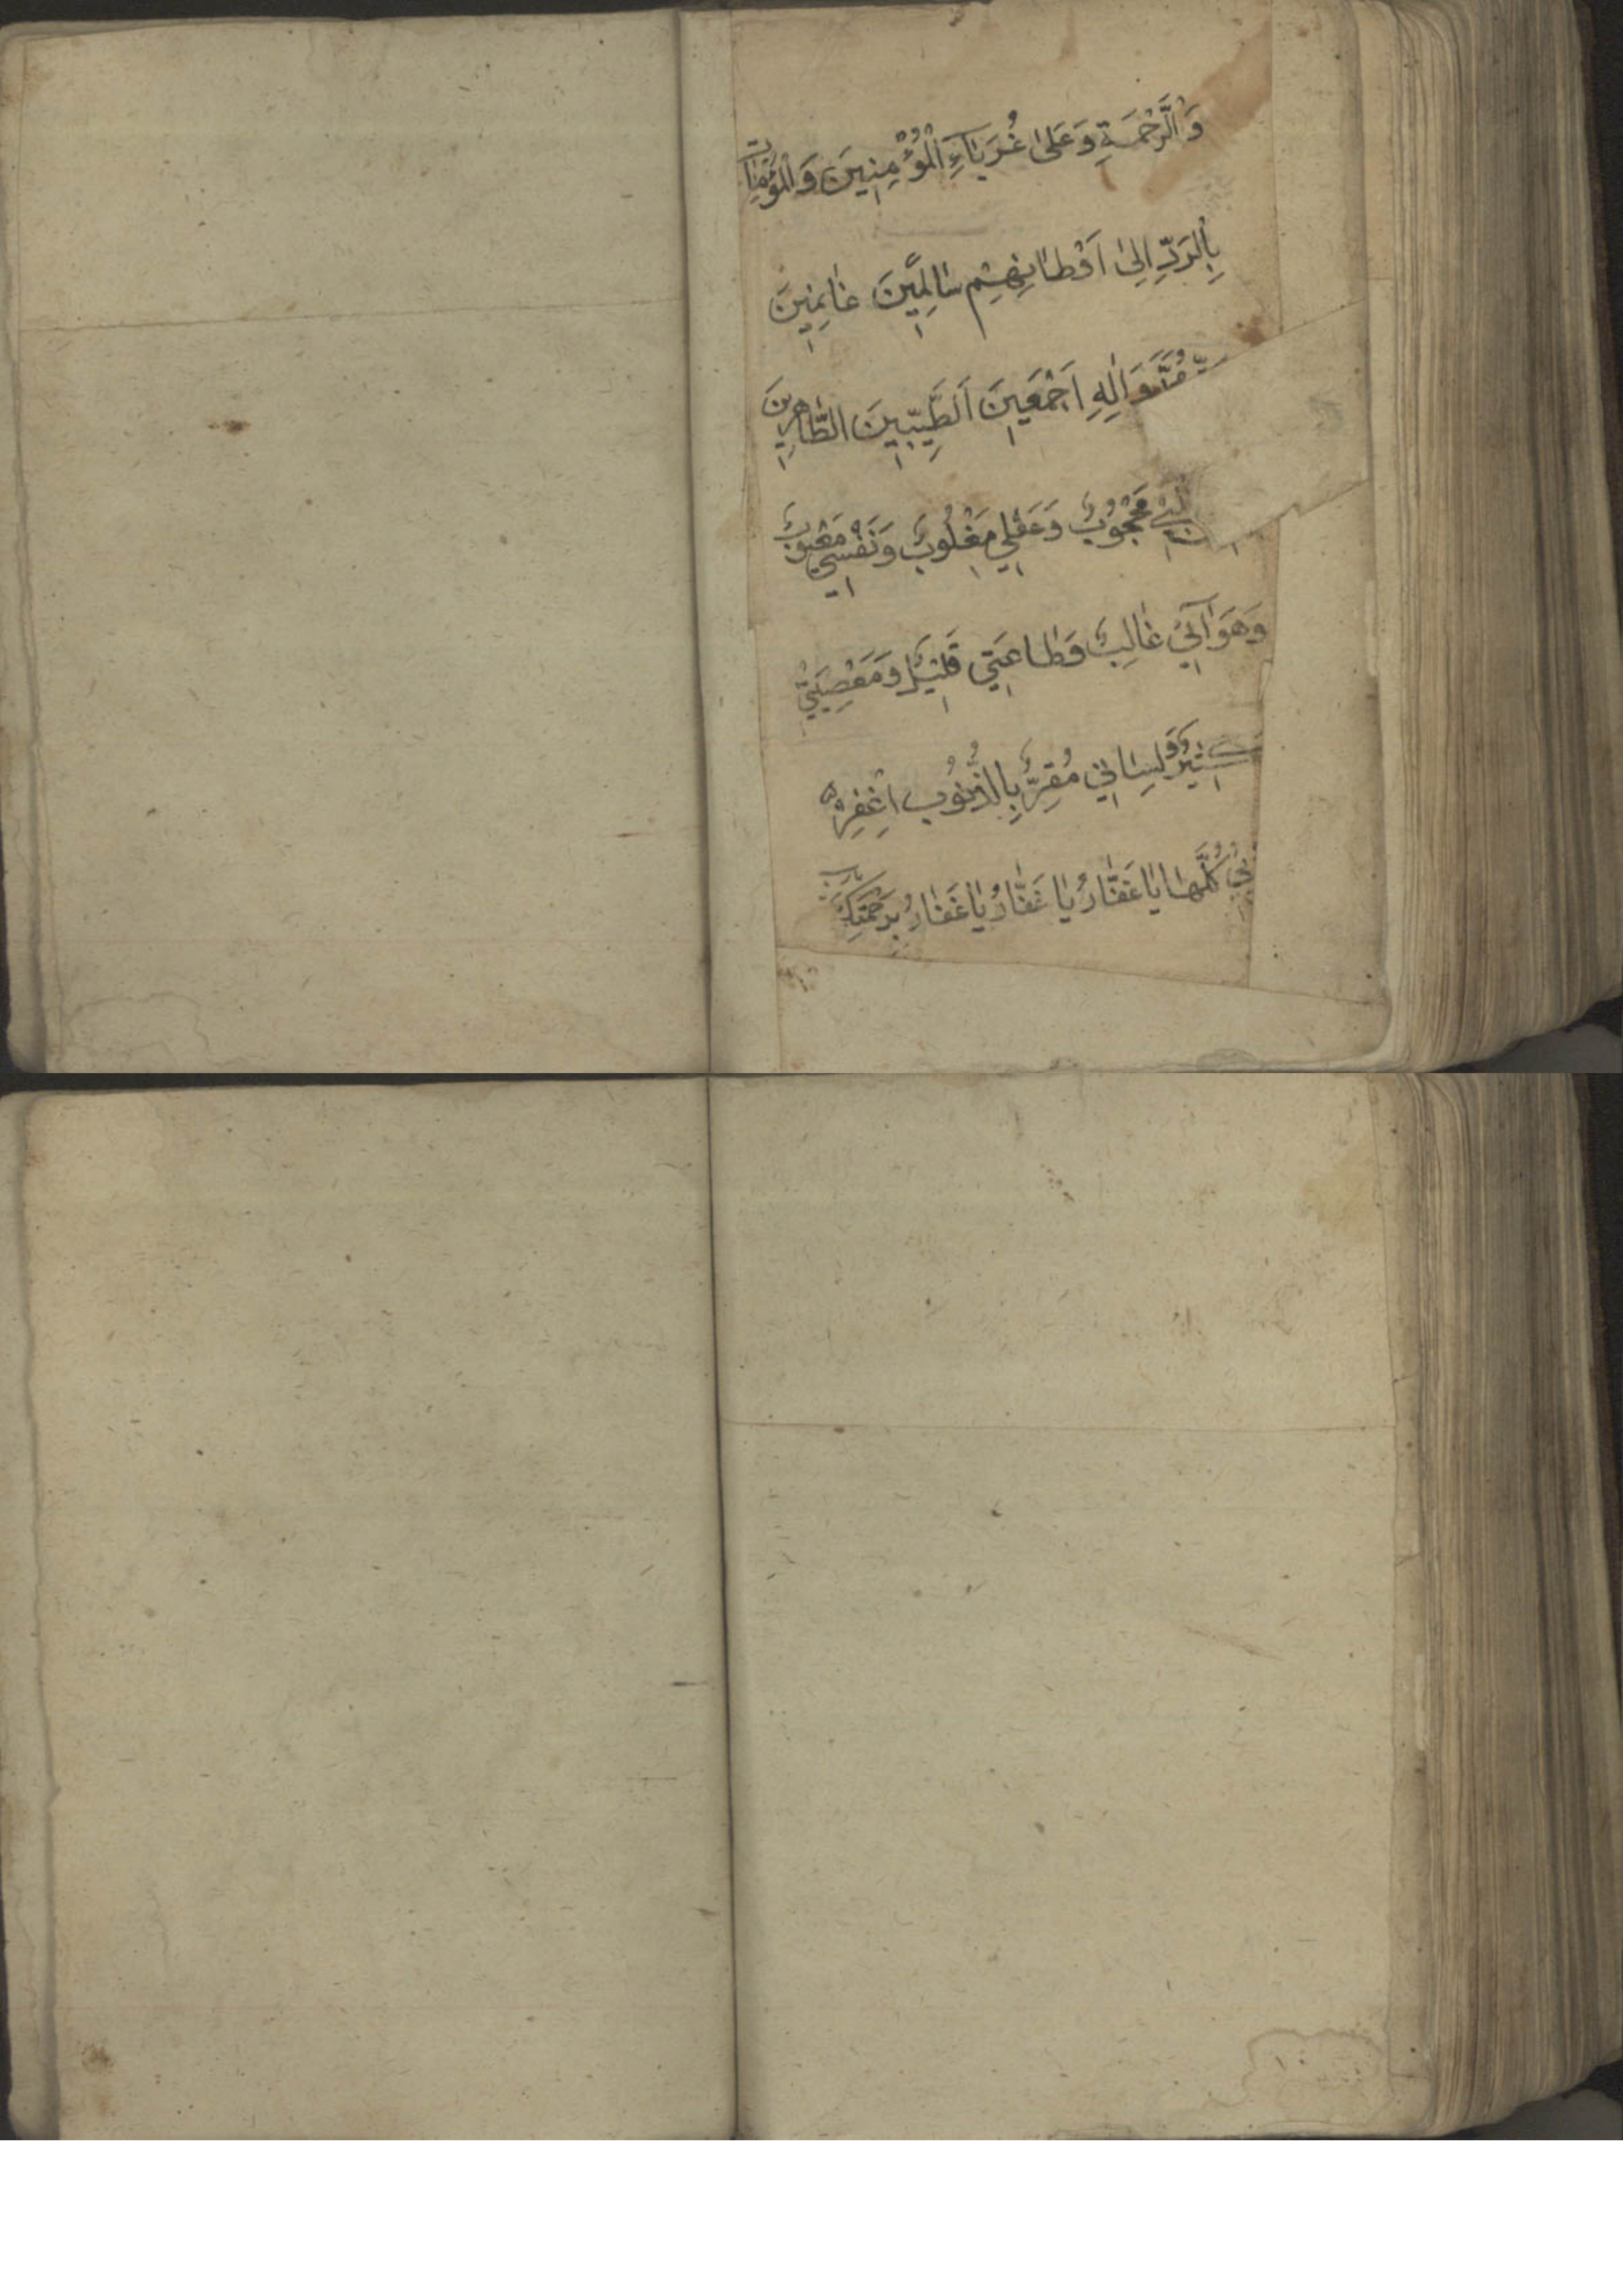 وَالرَّحْمَةِ وَعَلىٰ غُرَبَاءِ الْمُؤْمِنِينَ وَالْمُؤْمِنَاتِ
بِالرَّدِّ اِلىٰ اَوْطَانِهِمْ سَالِمِينَ غَانِمِينَ
وَاٰلِهِ اَجْمَعِينَ اَلطَّيِّبِينَ الطَّاهِرِينَ
مَحْجُوبٌ وَعَقْلِي مَغْلُوبٌ وَنَفْسِي مَعْيُوبٌ
وَهَوَائِي غَالِبٌ وَطَاعَتِي قَلِيلٌ وَمَعْصِيَتِي
كَثِيرٌ وَلِسَانِي مُقِرٌّ بِالذُّنُوبِ اغْفِرْ
كُلَّهَا يَا غَفَّارُ يَا غَفَّارُ يَا غَفَّارُ بِرَحْمَتِكَ